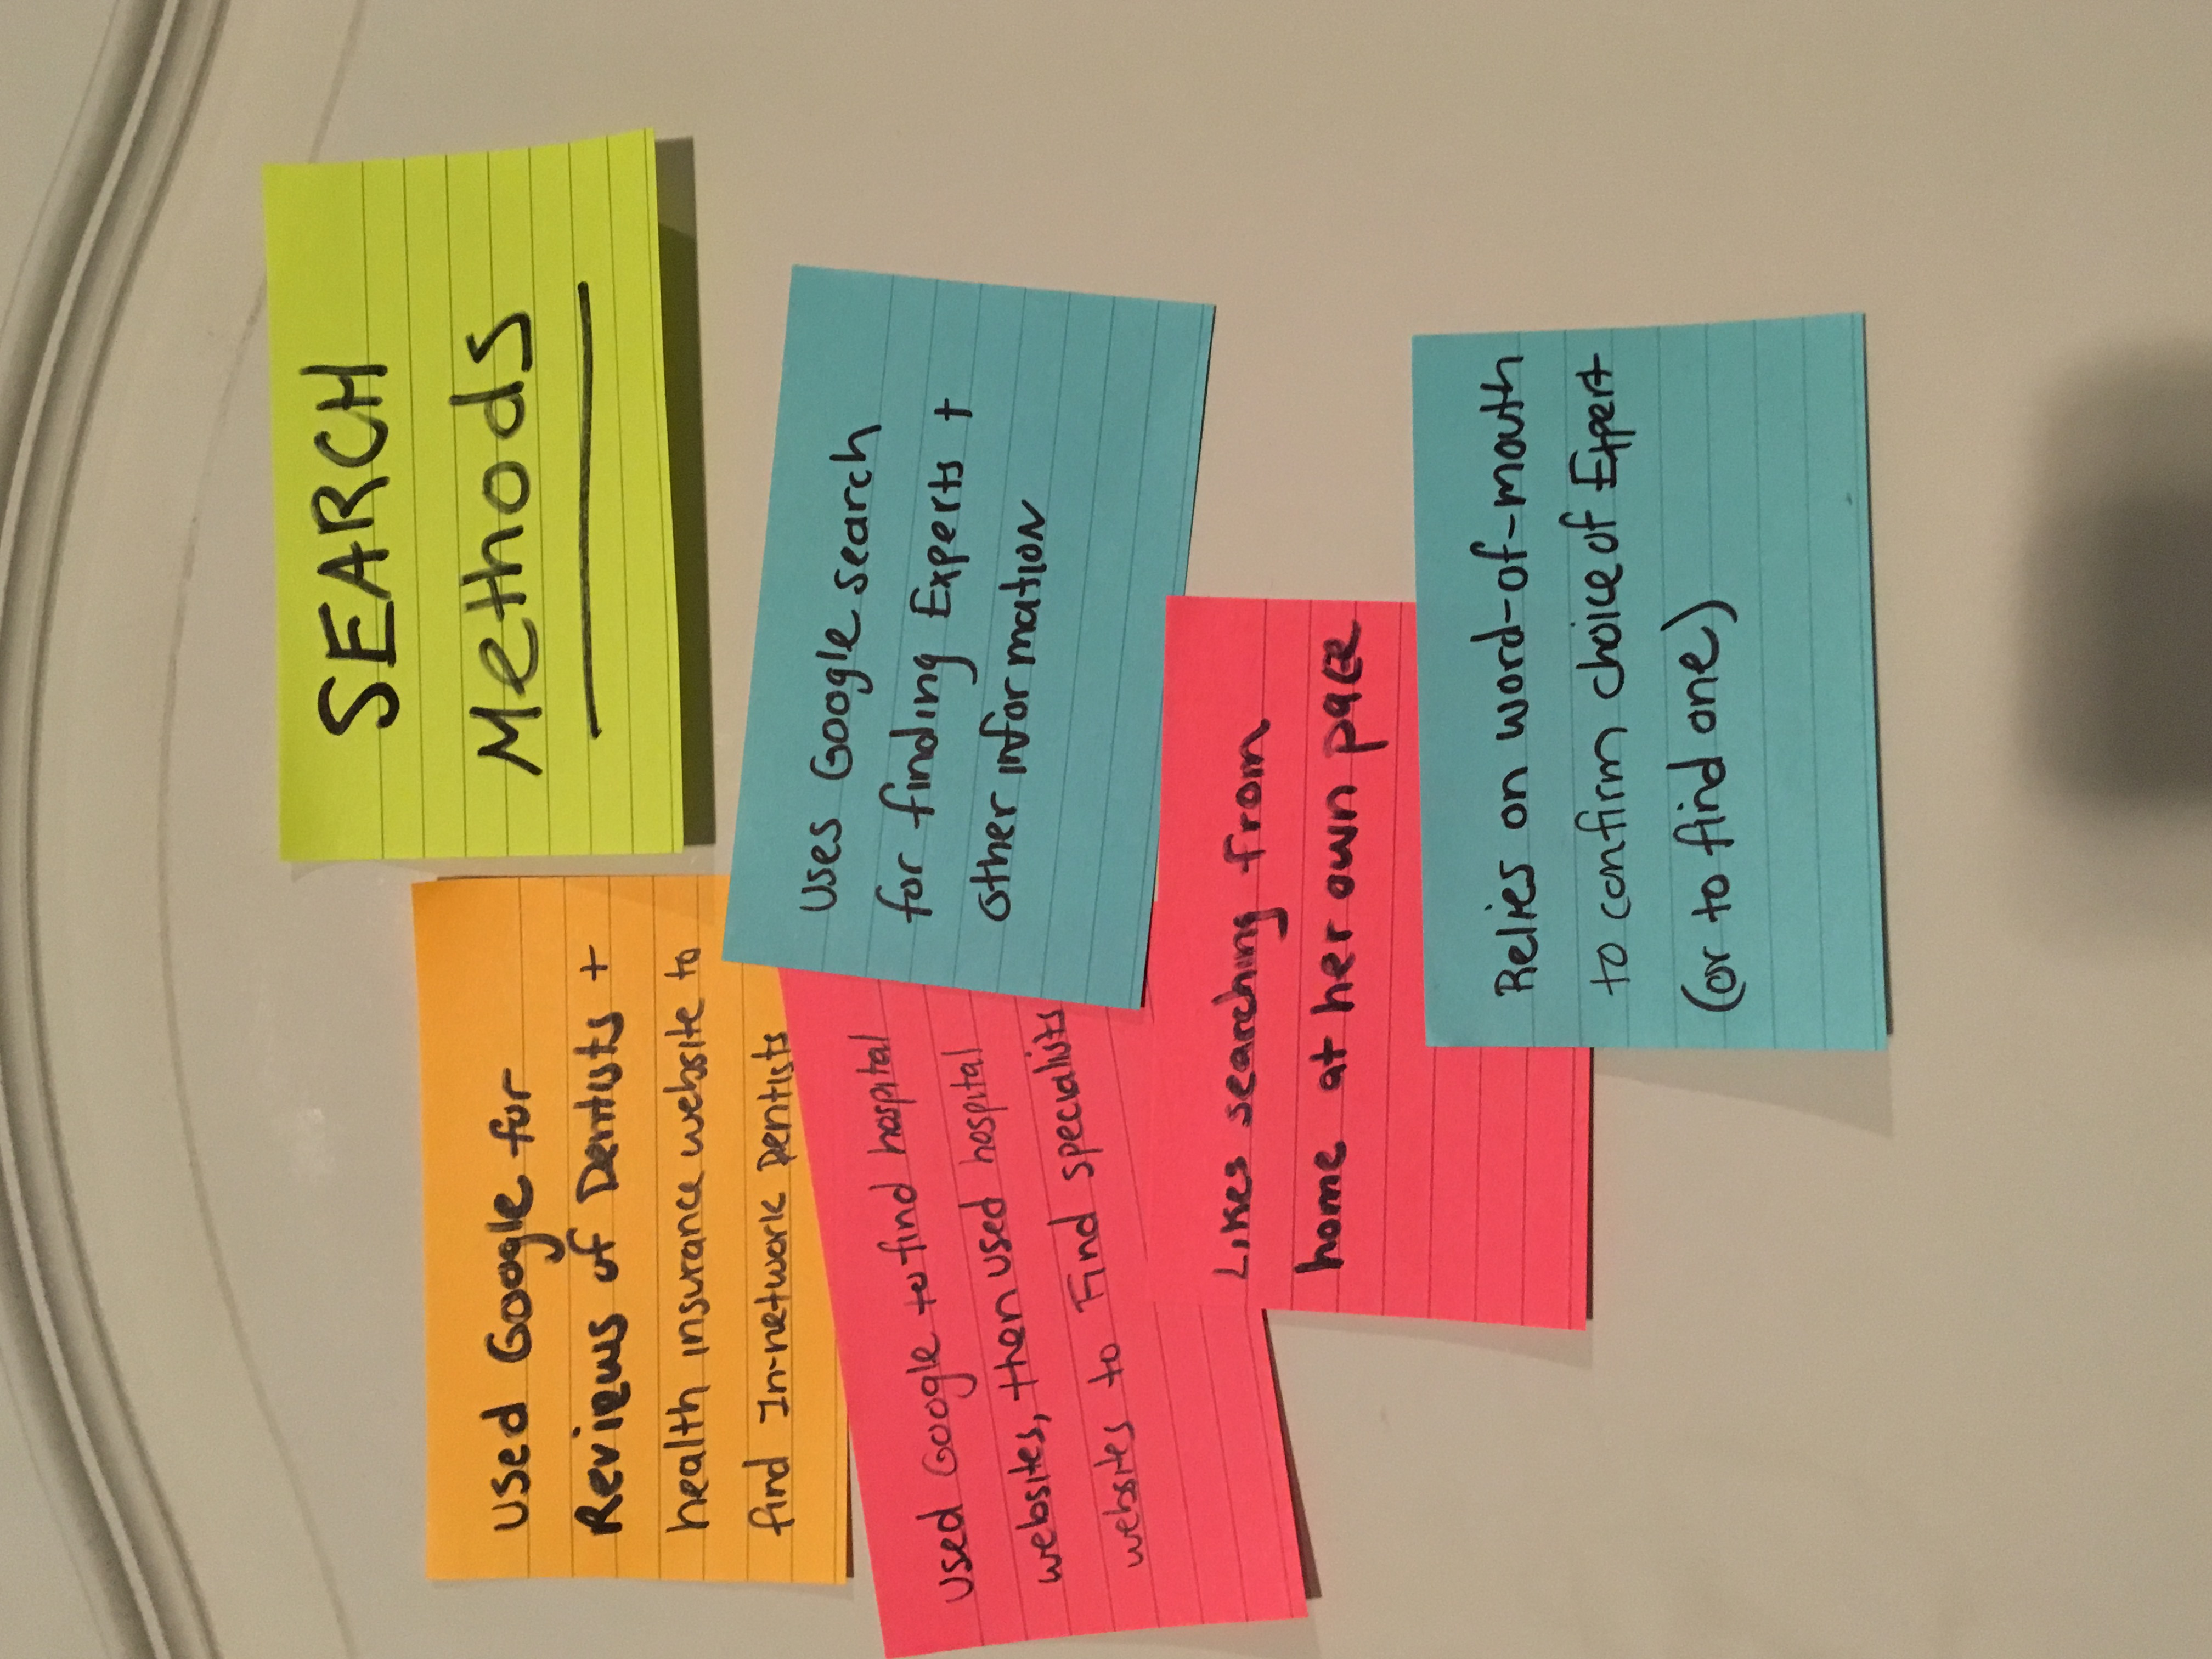 SEARCH
Methods
Used Google for
Reviews of Dentists +
health insurance website to
find In-network Dentists
Used Google to find hospital
websites, then used hospital
websites to Find specialists
Uses Google search
for finding Experts +
other information
Likes searching from
home at her own pace
Relies on word-of-mouth
to confirm choice of Expert
(or to find one)